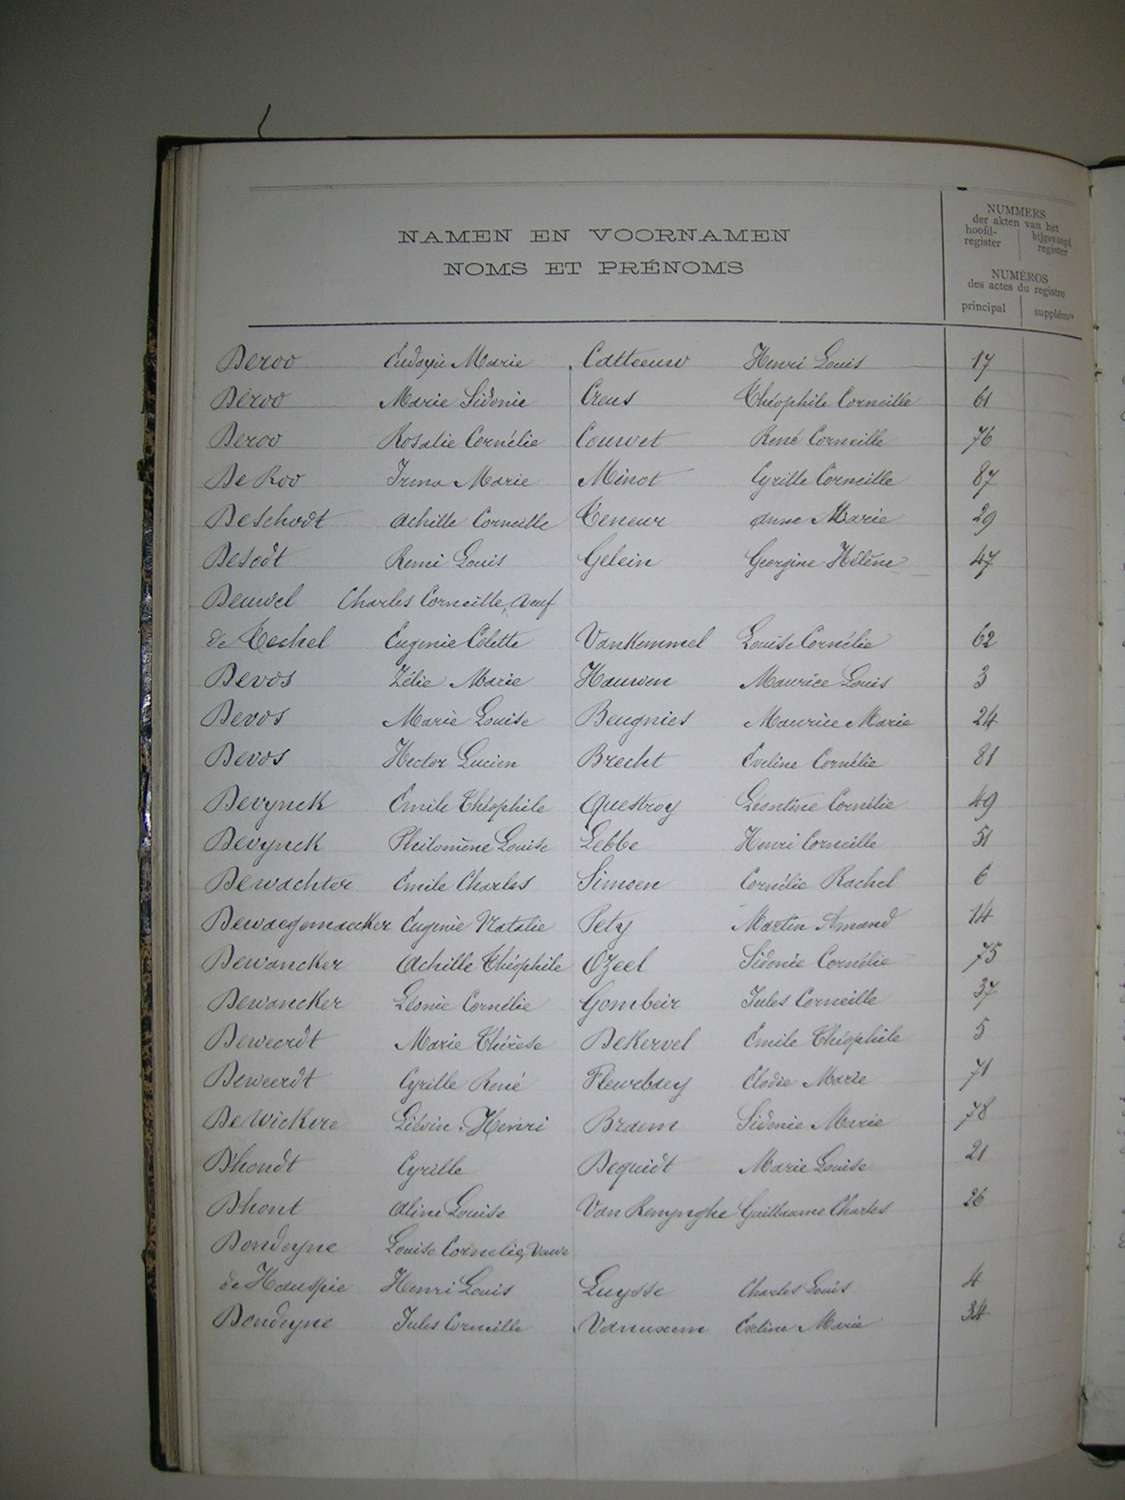 NAMEN EN VOORNAMEN
NOMS ET PRÉNOMS
NUMMERS
der akten van het
hoofd-register bijgevoegd register
NUMÉROS
des actes du registre
principal supplém
Deroo Marie Catteeuw Henri Louis 17
Deroo Marie Sidonie Creus Théophile Corneille 61
Deroo Rosalie Cornélie Couwet René Corneille 76
De Roo Irma Marie Minot Cyrille Corneille 87
Deschodt Achille Corneille Teneur Anne Marie 29
Desodt Remi Louis Gelein Georgine Hélène 47
Deuwel Charles Corneille, veuf
de Techel Eugenie Colette Vankemmel Louise Cornélie 62
Devos Zélie Marie Hauwen Maurice Louis 3
Devos Marie Louise Beugnies Maurice Marie 24
Devos Hector Lucien Brecht Eveline Cornélie 81
Devynck Emile Théophile Questroy Léontine Cornélie 49
Devynck Philomène Louise Lebbe Henri Corneille 51
Dewachter Emile Charles Simoen Cornélie Rachel 6
Dewaegemaecker Eugenie Natalie Pety Martin Amand 14
Dewancker Achille Théophile Ozeel Sidonie Cornélie 75
Dewancker Léonie Cornélie Gombeir Jules Corneille 37
Deweerdt Marie Thérèse DeKervel Emile Théophile 5
Deweerdt Cyrille René Flewebaey Elodie Marie 71
DeWickere Liévin Henri Braem Sidonie Marie 78
D'hondt Cyrille Dequidt Marie Louise 21
Dhont Aline Louise Van Rempnghe Guillaume Charles 26
Dondeyne Louise Cornelie, veuve
de Hauspie Henri Louis Luysse Charles Louis 4
Dondeyne Jules Corneille Vanuxem Eveline Marie 34